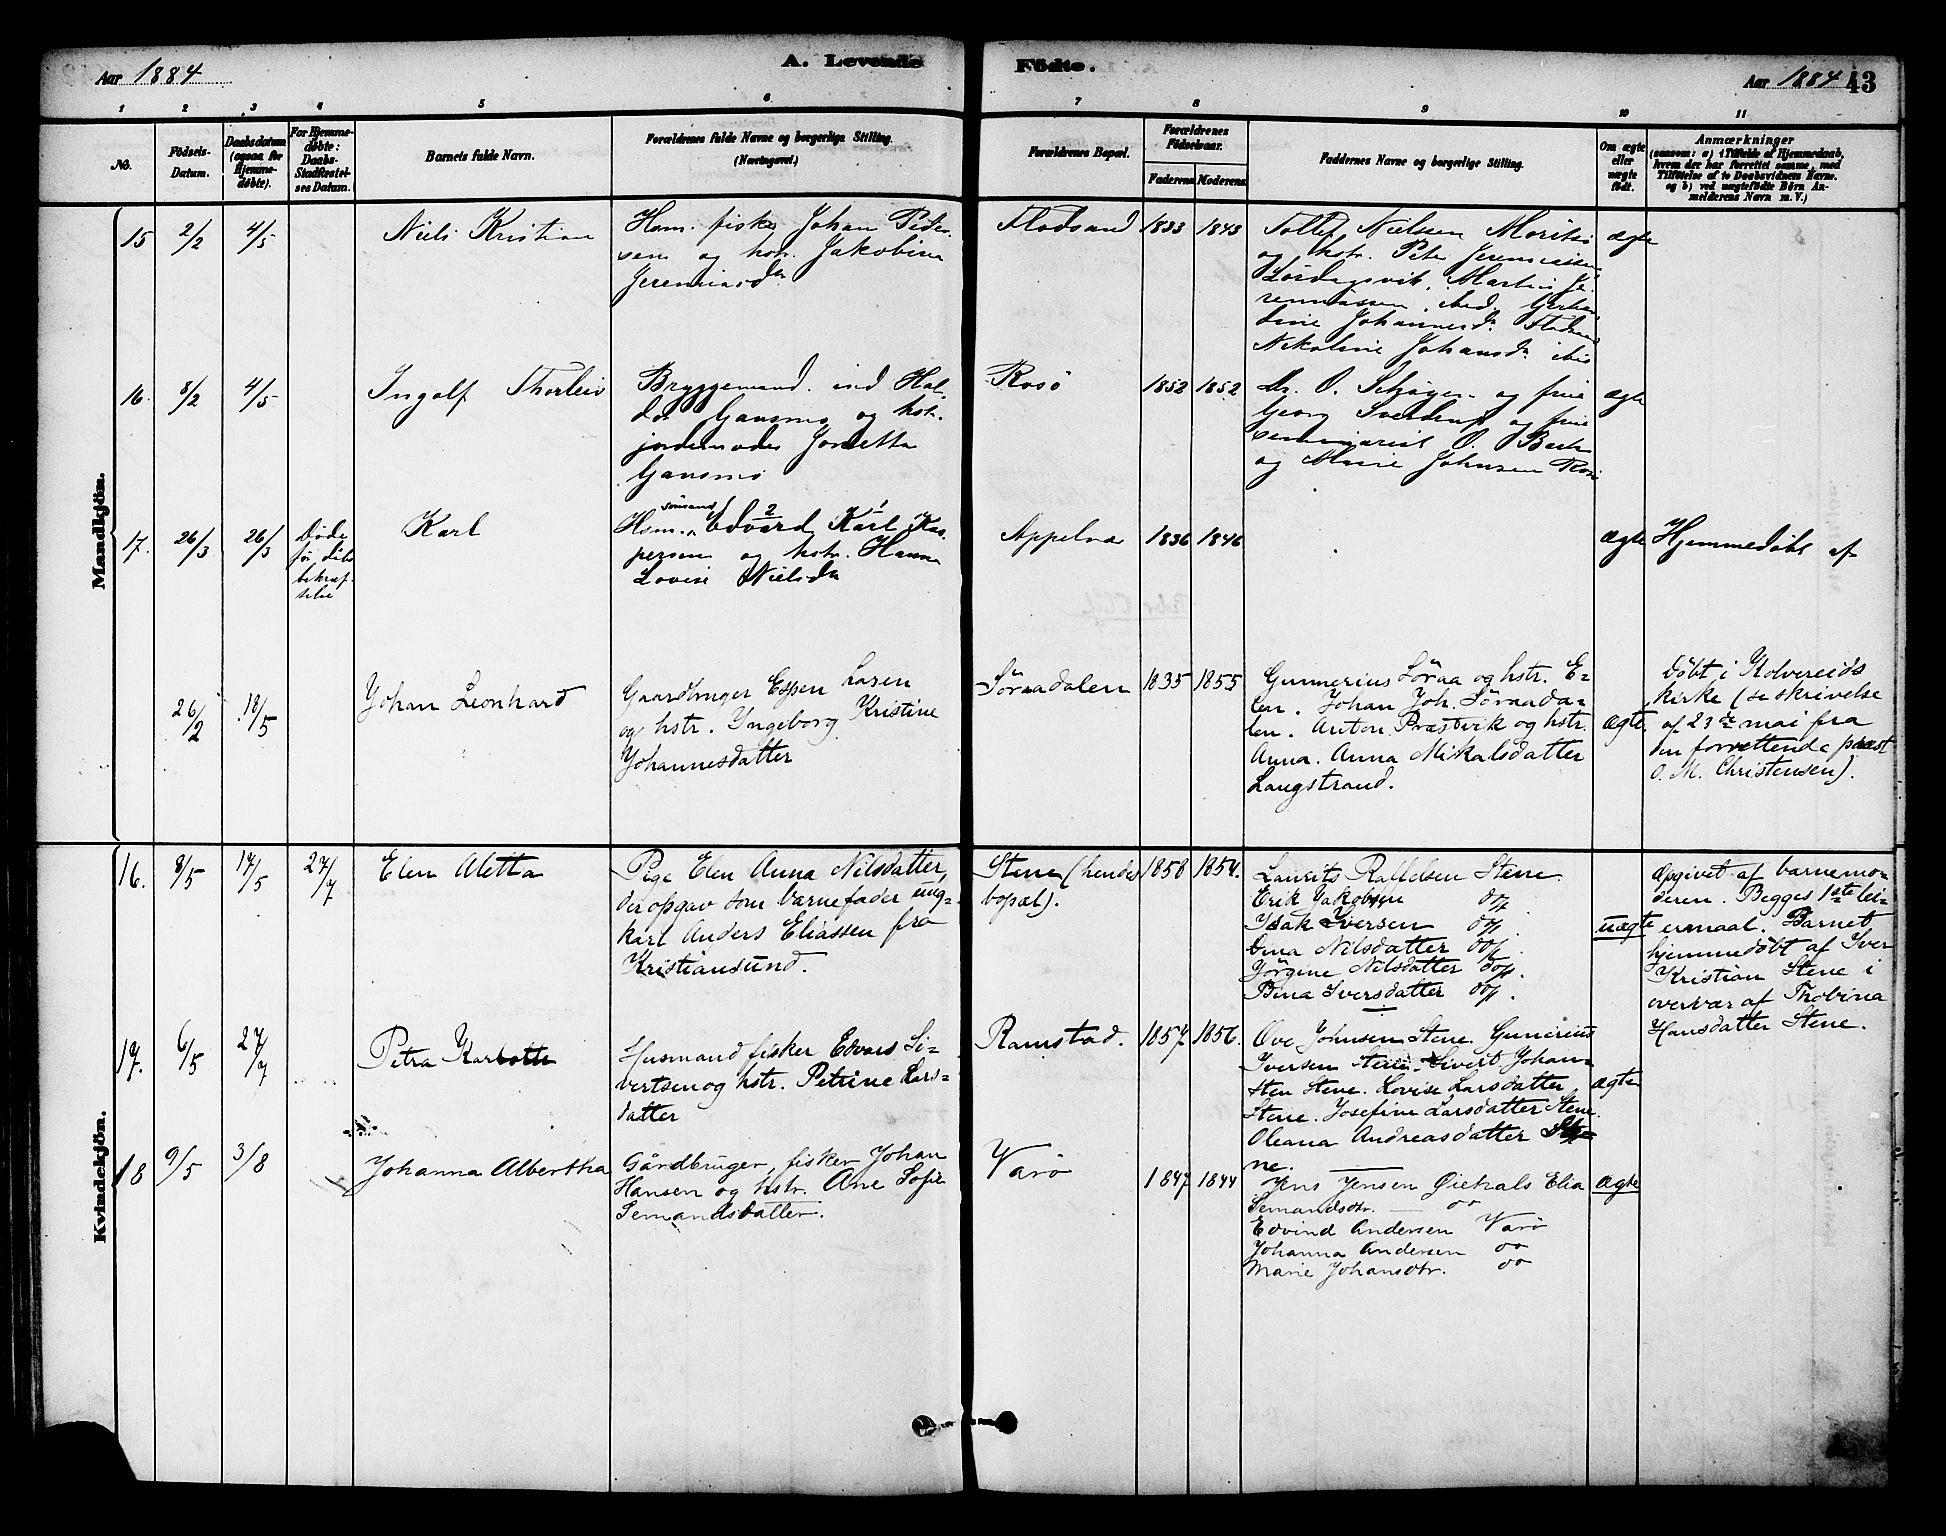 Aar 1884
A. Levende
Födte.
Aar 1884
43
1 2 3 4 5 6
7 8 9 10 11
No.
Födsels-
Datum.
Daabsdatum
(ogsaa for
Hjemme-
døbte).
For Hjemme-
døbte:
Daabs-
Stadfæstel-
ses Datum.
Barnets fulde Navn.
Forældrenes fulde Navne og borgerlige Stilling.
(Næringsvei.)
Forældrenes Bopæl.
Forældrenes
Födselsaar.
Faderens
Moderens
Faddernes Navne og borgerlige Stilling.
Om ægte
eller
uægte
født.
Anmærkninger
(saasom: a) i Tilfælde af Hjemmedaab,
hvem der har forrettet samme, med
Tilføielse af to Daabsvidners Navne,
og b) ved uægtefødte Børn An-
melderens Navn m. V.)
Mandkjön.
15
2/2
4/5
Niels Kristian
Hsm. fisker Johan Peder-
sen og hstr. Jakobine
Jeremiasd
Flodsand
1833
1843
Tollef Nielsen Moritsø
og hstr. Peter Jeremiassen
Lørdagsvik. Martin Je-
remiassen ibid.
dine Johannesd.
Nikoline Johansd. ibid
ægte
16.
8/2
4/5
Ingolf Thorleiv
Bryggemand. ind Hal-
dor Gansmo og hstr.
jordemoder Jonetta
Gansmo
Rosö
1852
1852
dr. O. og frue
Georg Sverdrup og frue
seminarist O.
og Marie Johnsen
ægte
17.
26/3
26/3
Døde
før dåbs
bekræf-
telse
Karl
sömand
2 1
Hsm. Edvard Karl Kas-
persen og hstr. Hanna
Lovise Nielsd
Appelvær
1836
1846
ægte
Hjemmedöbt af
26/2
18/5
Johan Leonhard
Gaardbruger Espen Larsen
og hstr. Ingeborg Kristine
Johannesdatter
Söraadalen
1835
1855
Gunnerius Söraa og hstr. E-
len. Johan Joh. Söraada-
len. Anton Præstvik og hstr.
Anna. Anna Mikalsdatter
Langstrand.
Ægte.
Döbt i Kolvereids
kirke (se skrivelse
af 23de mai fra
den forrettende præst
O. M. Christensen).
Kvindekjön.
16.
8/5
17/5
27/7
Elen Aletta
Pige Elen Anna Nilsdatter,
der opgav som barnefader ung-
karl Anders Eliassen fra
Kristiansund.
Stene (hendes
bopæl).
1858
1854.
Laurits Rafaelsen Stene.
Erik Jakobsen do/.
Isak Iversen do/.
Dina Nilsdatter do/.
Jörgine Nilsdatter do/.
Bina Iversdatter do/.
uægte
Opgivet af barnemo-
deren. Begges 1ste lei-
ermaal. Barnet
hjemmedöbt af Iver
Kristian Stene i
overvær af Thobina
Hansdatter Stene.
17.
6/5
27/7
Petra Karlotte
Husmand fisker Edvard Si-
vertsen og hstr. Petrine Lars-
datter
Ramstad.
1857
1856.
Ove Johnsen Stene. Gunerius
Iversen Stene. Sivert Johan-
sen Stene. Lovise Larsdatter
Stene. Josefine Larsdatter Stene.
Oleana Andreasdatter Ste-
ne.
Ægte
18
9/5
3/8
Johanna Albertha
Gårdbruger, fisker Johan
Hansen og hstr. Ane Sofie
Semandsdatter.
Varö
1847
1844
Jens Jensen Gjethals Elia
Semandsdtr. — do
Edvind Andersen Varö
Johanna Andersen do
Marie Johansdtr. do
Ægte